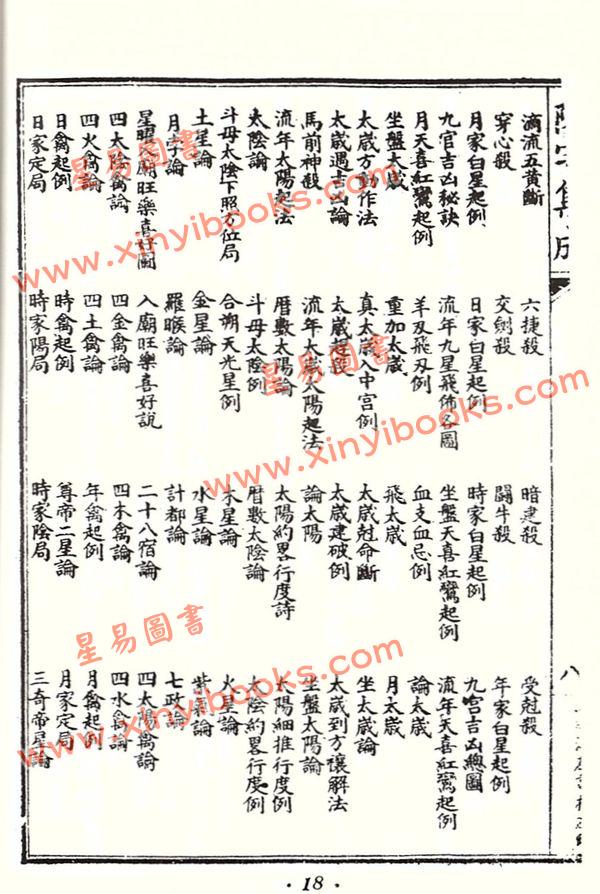 滴流五黃斷 六捷殺 暗建殺 受尅殺
穿心殺 交劍殺 鬪牛殺 年家白星起例
月家白星起例 日家白星起例 時家白星起例 九宮吉凶總圖
九宮吉凶秘訣 流年九星飛佈各圖 坐盤天喜紅鸞起例 流年天喜紅鸞起例
月天喜紅鸞起例 羊刃飛刃例 血支血忌例 論太歲
坐盤太歲 重加太歲 飛太歲 月太歲
太歲方動作法 真太歲入中宮例 太歲尅命斷 坐太歲論
太歲遇吉凶論 太歲 太歲建破例 太歲到方禳解法
馬前神殺 流年太歲太陽起法 論太陽 坐盤太陽論
流年太陽起法 曆數太陽論 太陽約畧行度詩 太陽細推行度例
太陰論 斗母太陰例 曆數太陰論 太陰約畧行度例
斗母太陰下照方位局 合朔天光星例 木星論 火星論
土星論 金星論 水星論 紫氣論
月孛論 羅睺論 計都論 七政論
星曜入廟旺樂喜好圖 入廟旺樂喜好說 二十八宿論 四太陽禽論
四太陰禽論 四金禽論 四木禽論 四水禽論
四火禽論 四土禽論 年禽起例 月禽起例
日禽起例 時禽起例 尊帝二星論 月家定局
日家定局 時家陽局 時家陰局 三奇帝星論
·18·
星易圖書
www.xinyibooks.com
星易圖書
www.xinyibooks.com
星易圖書
www.xinyibooks.com